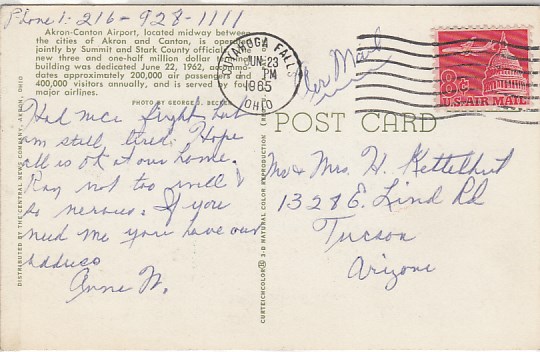 Phone 1: 216-928-1111
Akron-Canton Airport, located midway between
the cities of Akron and Canton, is operated
jointly by Summit and Stark County officials. The
new three and one-half million dollar terminal
building was dedicated June 22, 1962, accommo-
dates approximately 200,000 air passengers and
400,000 visitors annually, and is served by four
major airlines.
PHOTO BY GEORGE S. BECKER
CUYAHOGA FALLS
JUN 23
PM
1965
OHIO
Air Mail
8c
U.S. AIR MAIL
POST CARD
Had nice flight but
am still tired. Hope
all is ok at our home.
Ray not too well &
so nervous. If you
need me you have our
address
Anne W.
Mr & Mrs. H. Kettelhut
1328 E. Lind Rd
Tucson
Arizona
DISTRIBUTED BY THE CENTRAL NEWS COMPANY, AKRON, OHIO
CURTEICHCOLOR 3-D NATURAL COLOR REPRODUCTION